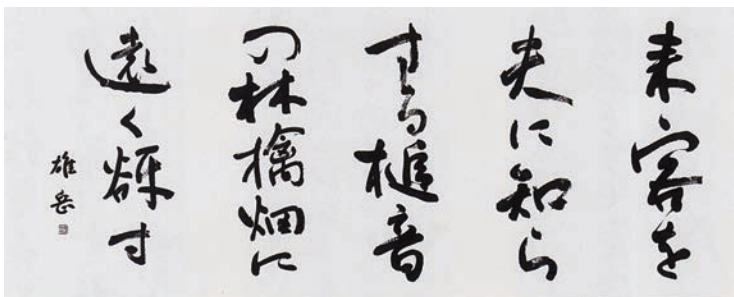 来客を
夫に知ら
する槌音
の林檎畑に
遠く
す
雄岳